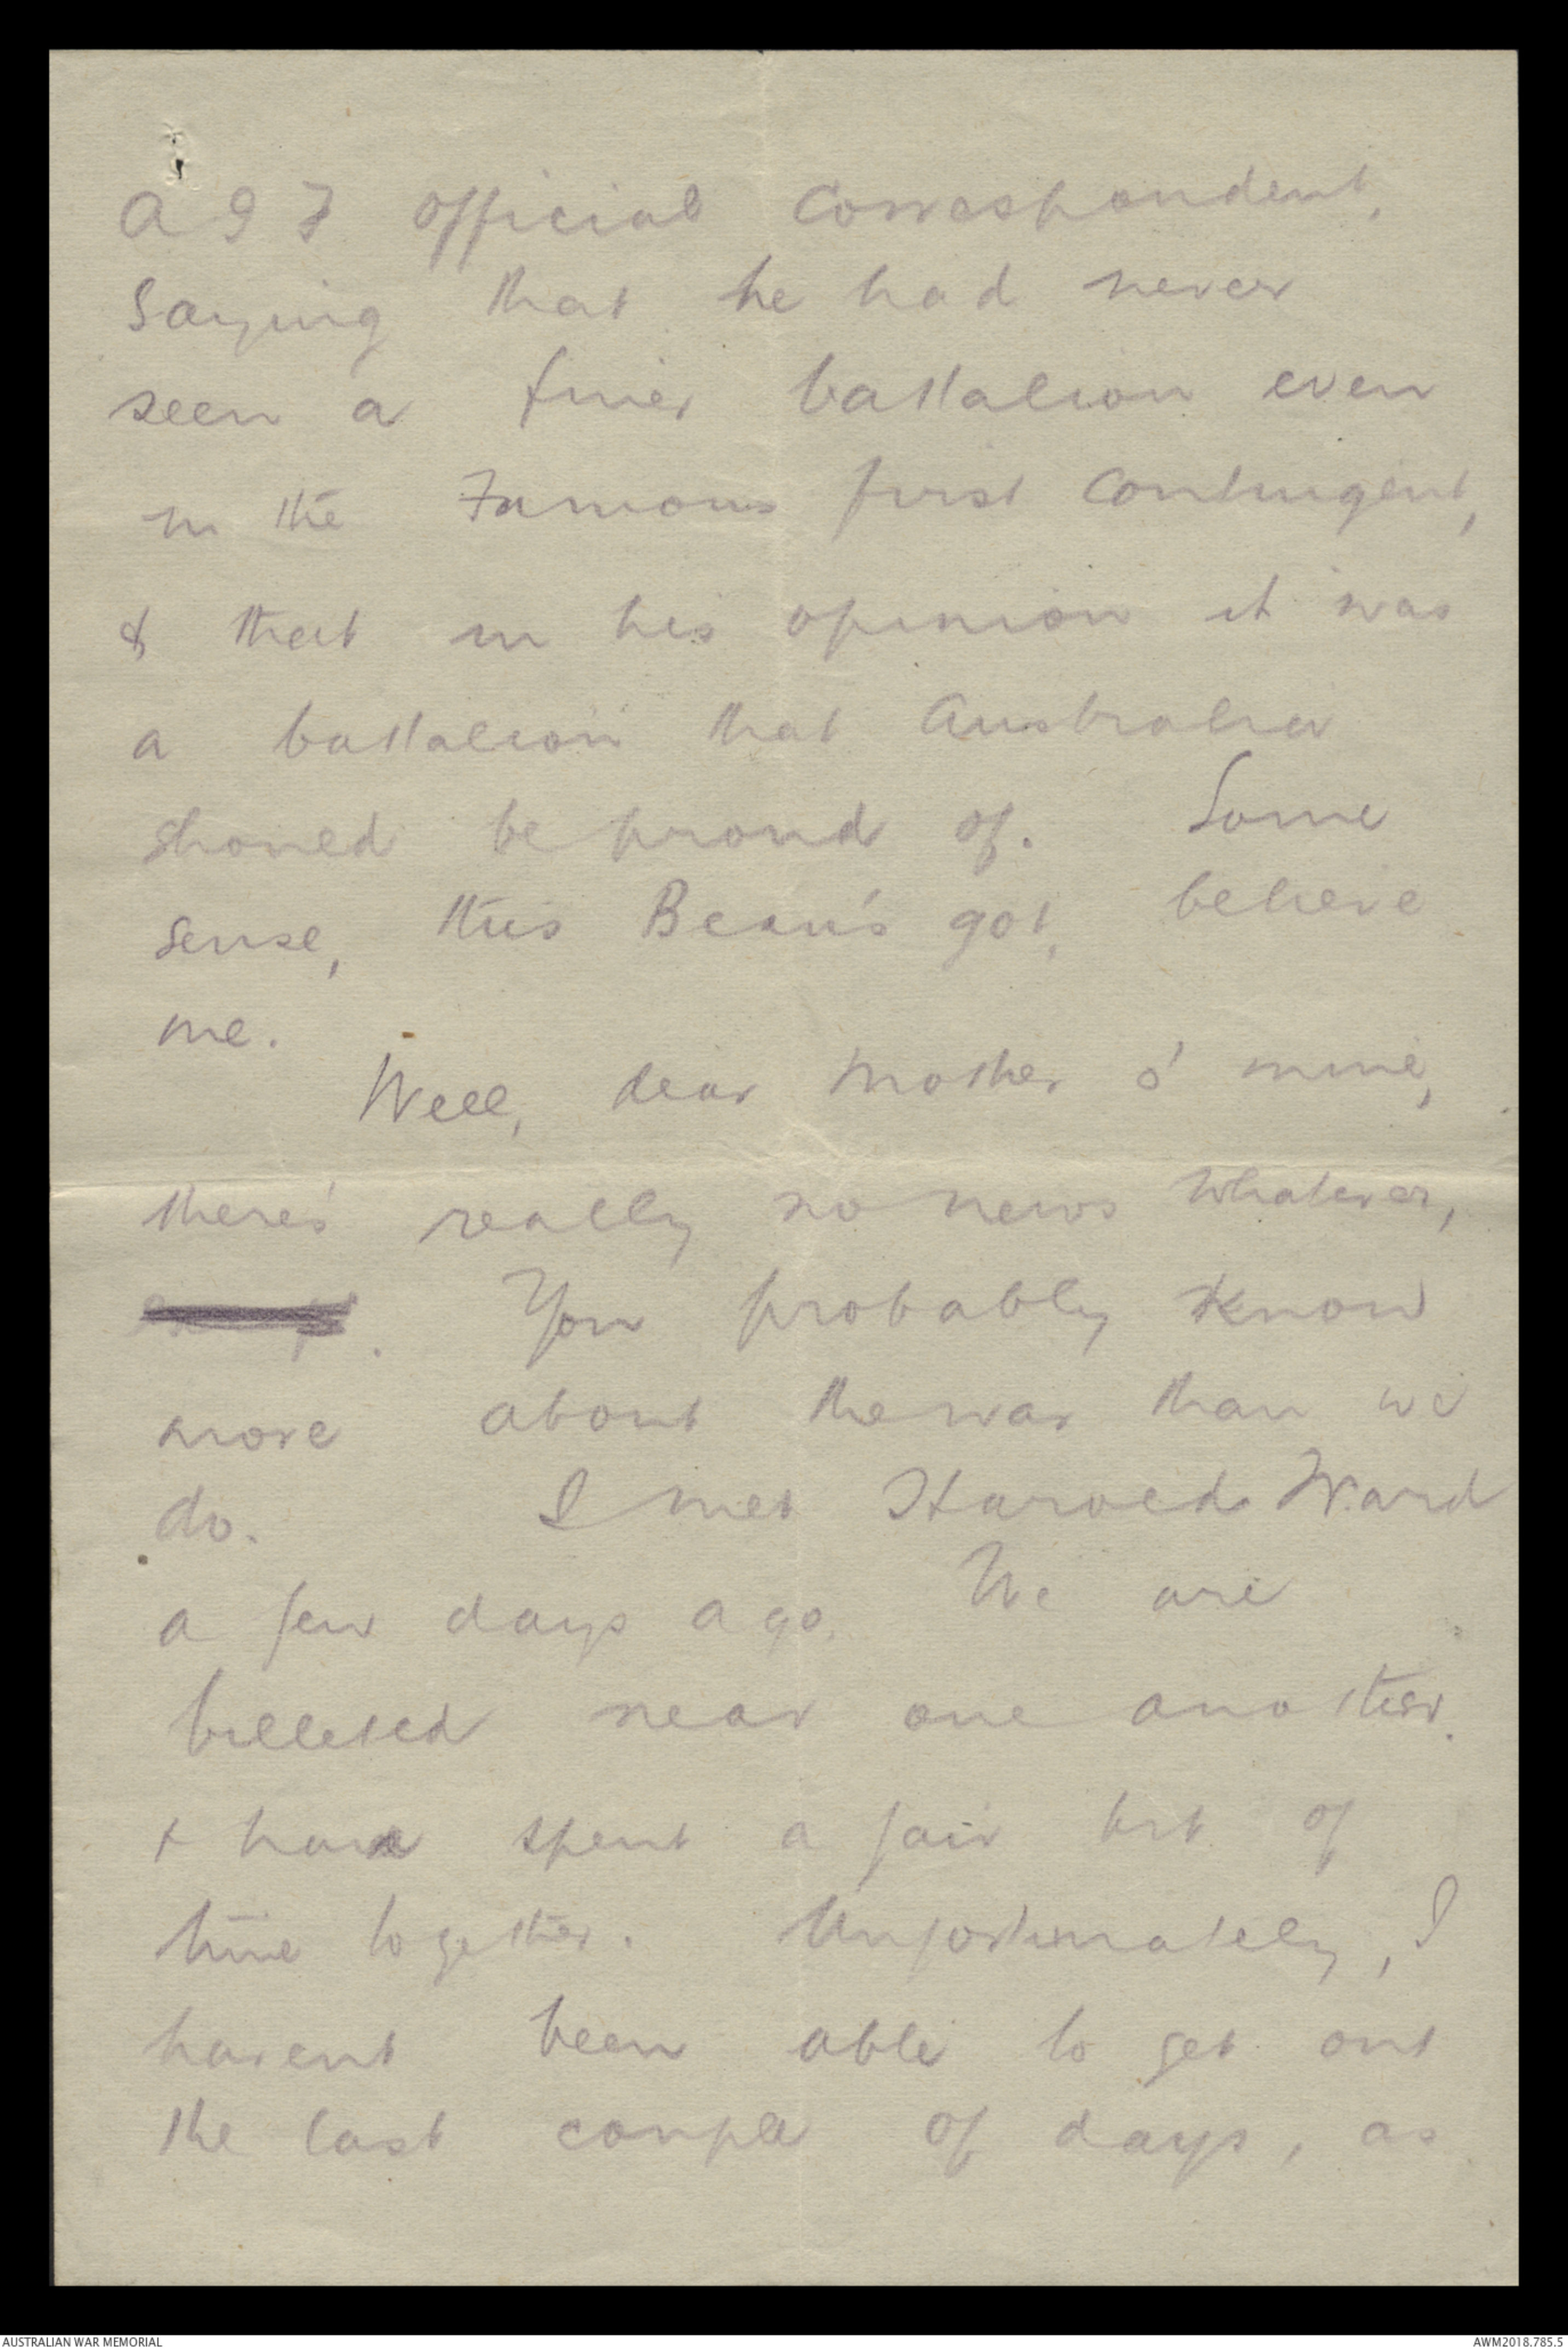 A I F official correspondent,
saying that he had never
seen a finer battalion even
in the Famous first contingent,
& that in his opinion it was
a battalion that Australia
should be proud of. Some
sense, this Bean's got, believe
me.
Well, dear mother o' mine,
there's really no news whatever,
. You probably know
more about the war than we
do. I met Harold Ward
a few days ago. We are
billeted near one another.
& have spent a fair bit of
time together. Unfortunately, I
havent been able to get out
the last couple of days, as
AUSTRALIAN WAR MEMORIAL
AWM2018.785.5